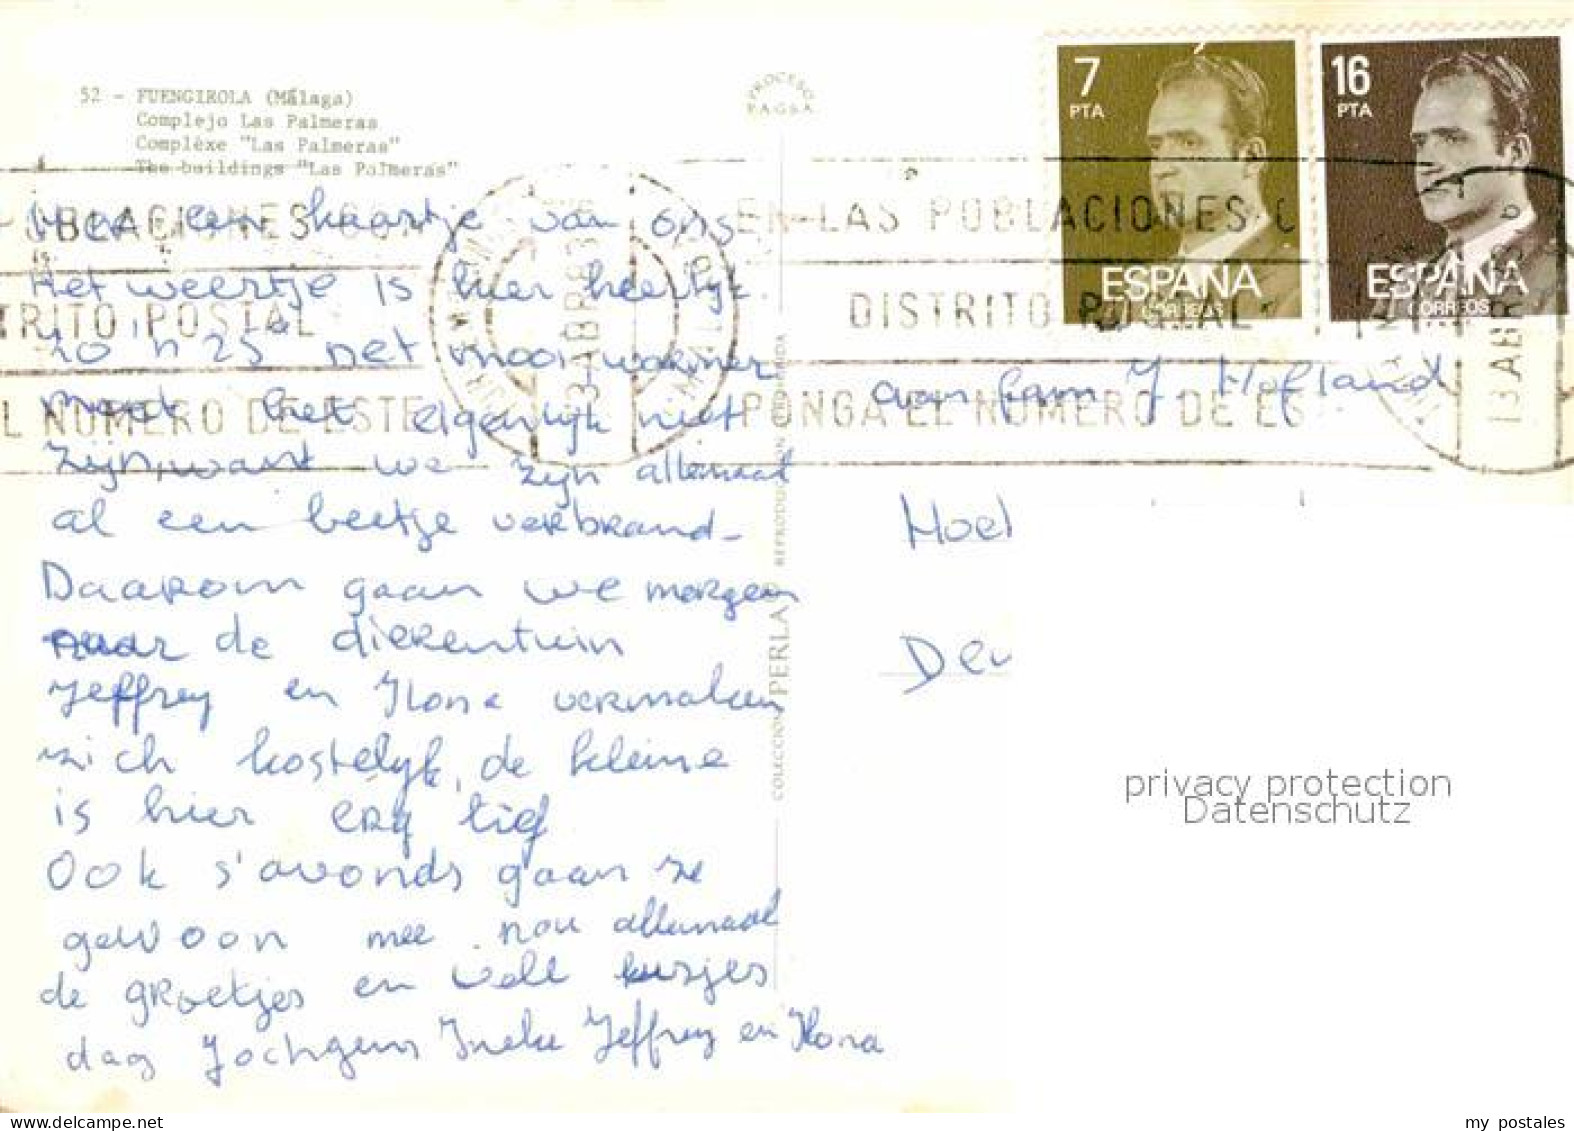 52 - FUENGIROLA (Málaga)
Complejo Las Palmeras
Complèxe "Las Palmeras"
The buildings "Las Palmeras"
PROCESO
PAGSA
7
PTA
ESPAÑA
CORREOS
16
PTA
ESPAÑA
CORREOS
BLACIONES CON
TRITO POSTAL
L NUMERO DE ESTE
13 ABR 83
EN LAS POBLACIONES C
DISTRITO POSTAL
PONGA EL NUMERO DE ES
13 ABR
Hier een kaartje van ons
Het weertje is hier heerlyk.
zo 'n 25 net mooi warmer
moet het eigenlyk niet
zyn, want we zyn allemaal
al een beetje verbrand-
Daarom gaan we morgen
naar de dierentuin
Jeffrey en Ilona vermaken
zich kostelyk, de kleine
is hier erg lief
Ook s'avonds gaan ze
gewoon mee. nou allemaal
de groetjes en vele kusjes
dag Jochgem Ineke Jeffrey en Ilona
COLECCION PERLA REPRODUCCION PROHIBIDA
aan fam J. Hofland
Hoel
Dev
privacy protection
Datenschutz
my postales